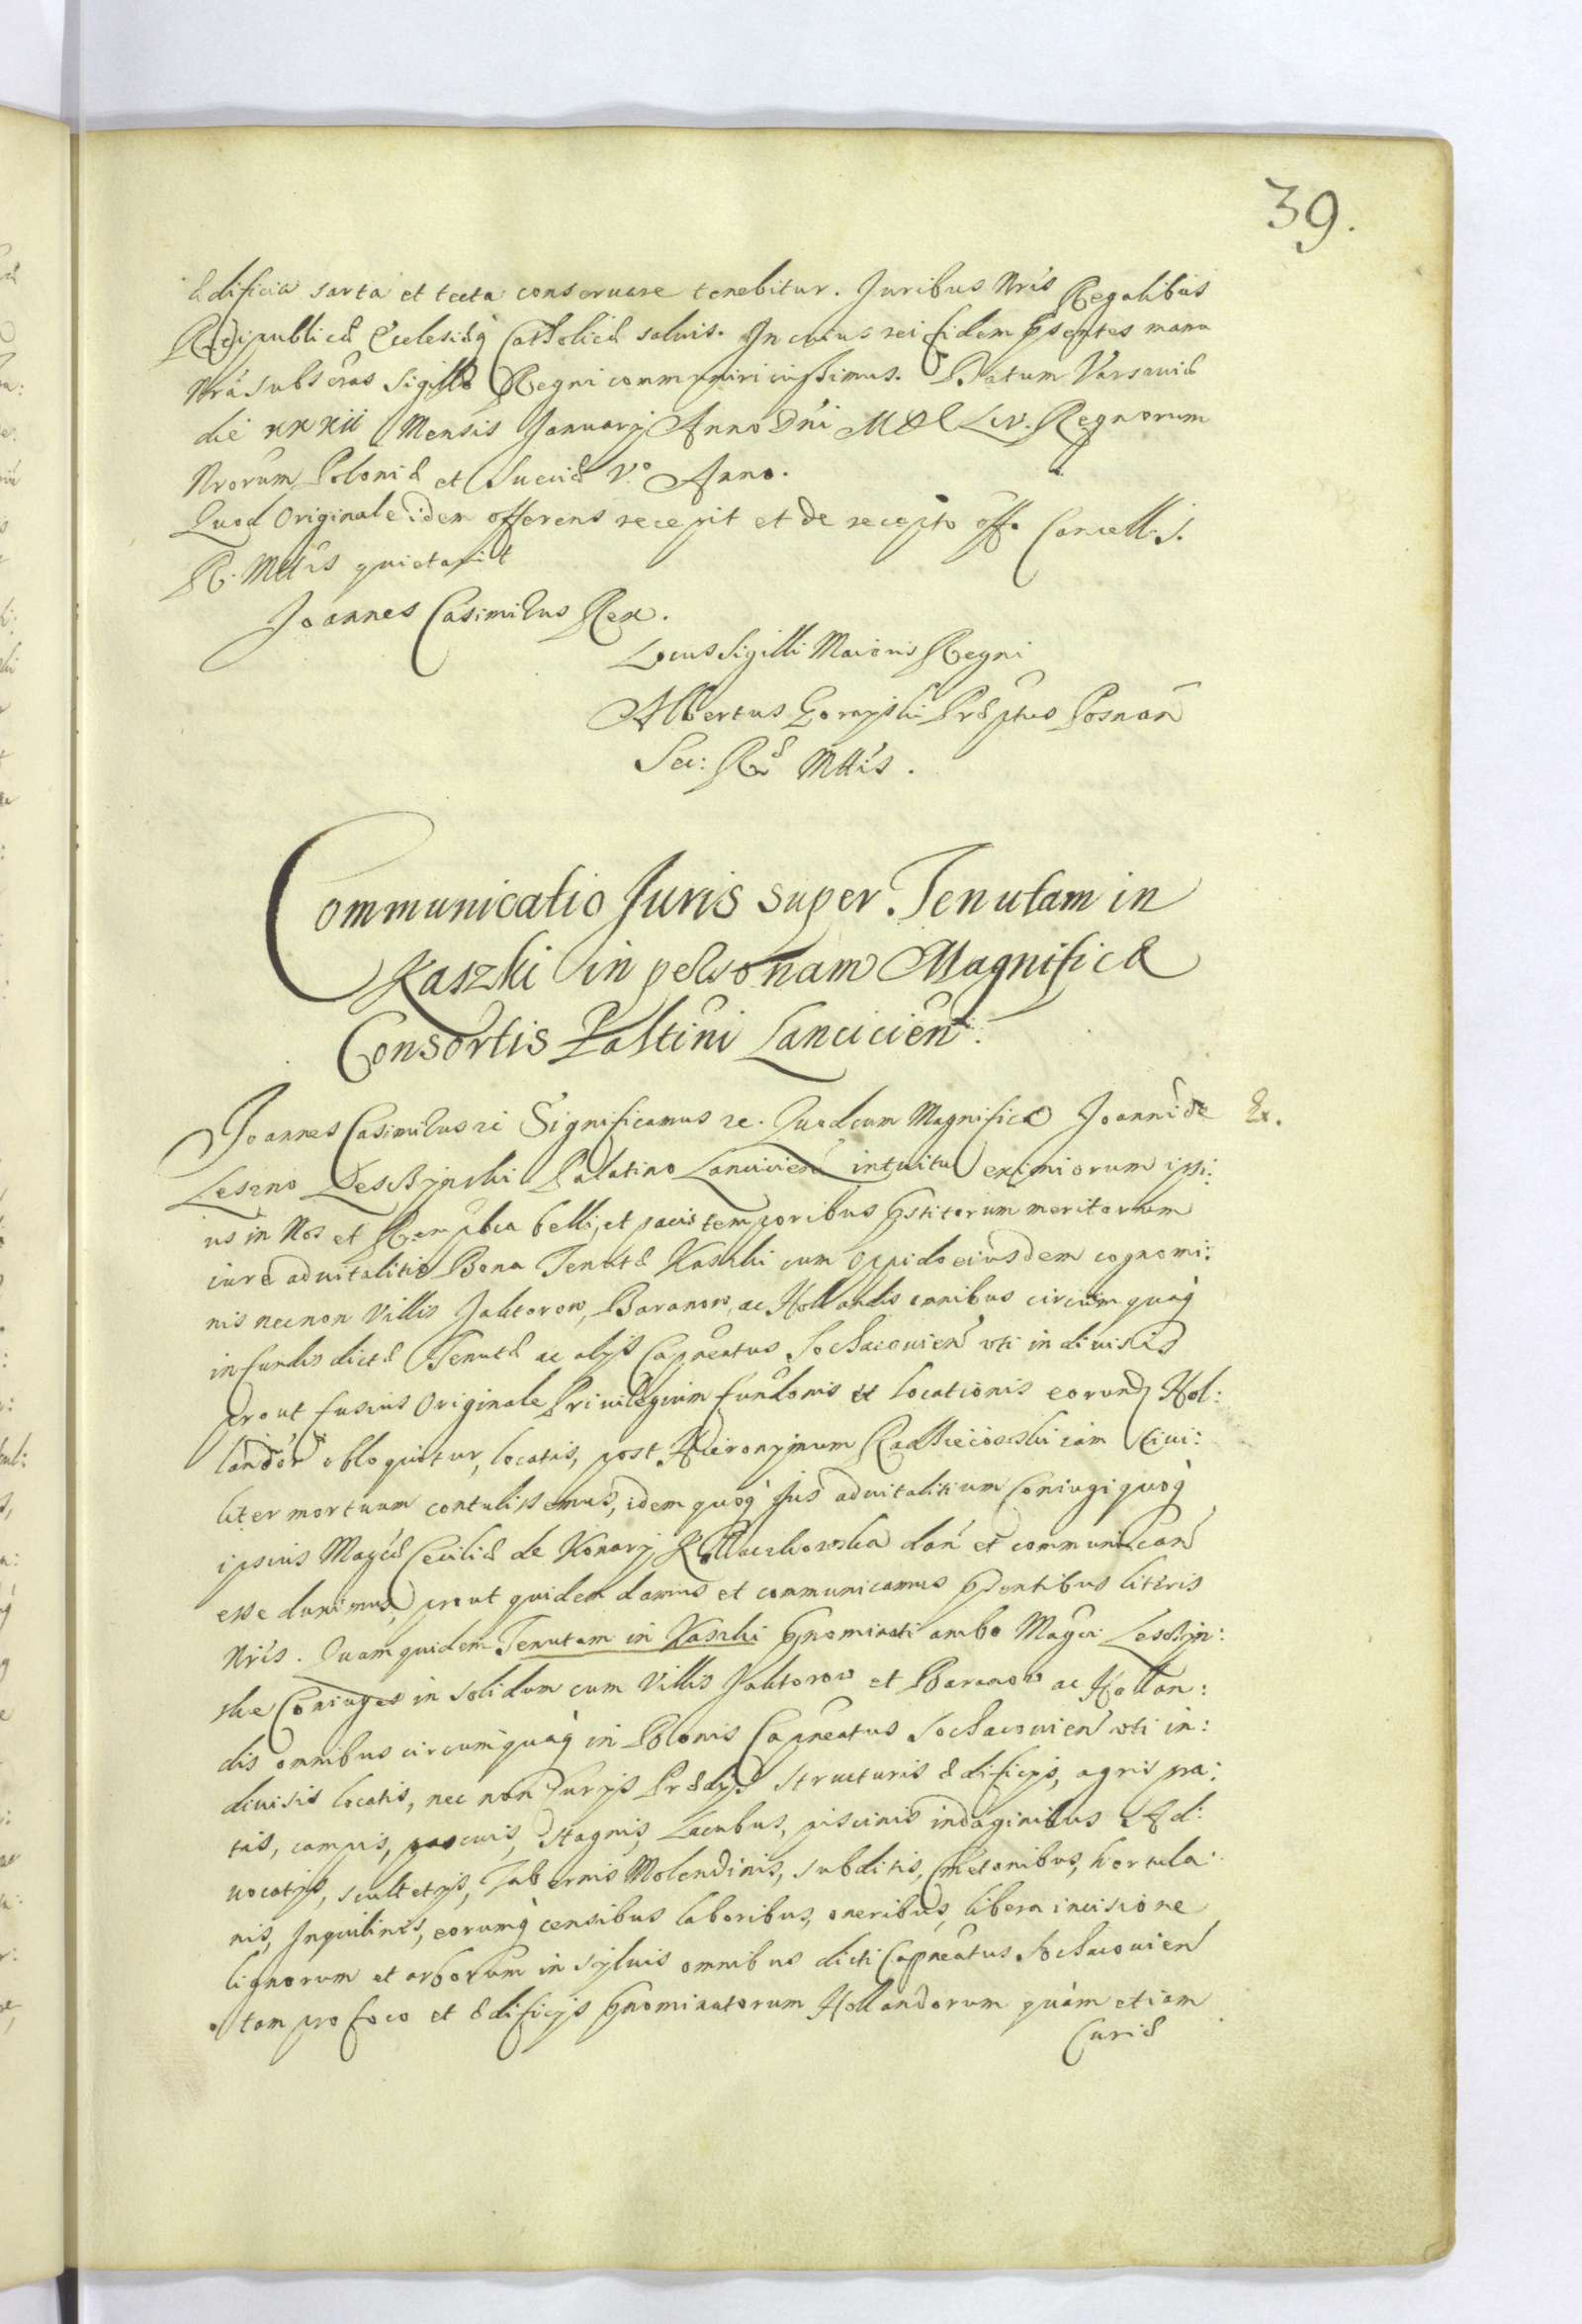 39.
ædificia sarta et tecta conseruare tenebitur. Juribus Nris Regalibus
Reipublicæ Ecclesiæq́ Catholicæ saluis. In cuius rei fidem pñsentes manu
Nrã subscras Sigillo Regni communiri iussimus. Datum Varsauiæ
die xxxii Mensis January Anno Dñi MDCLiv. Regnorum
Nrorum Poloniæ et Sueciæ Vº Anno.
Quod Originale idem offerens recepit et de recepto off. Cancell. S.
R. Mttis quietauit
Joannes Casimirus Rex.
Locus Sigilli Maioris Regni
Albertus Gorayski Præptus Posnan
Sec: Ræ Mttis.
Communicatio Juris super Tenutam in
Kaszki in personam Magnificæ
Consortis Paltini Lancicien:
Joannes Casimirus rc Significamus rc. Quod cum Magnifico Joanni de
Ex.
Leszno Leschynski Palatino Lancicien intuitu eximiorum ipsi:
us in Nos et Rempbca belli, et pacis temporibus pñstitorum meritorum
iure aduitalitio Bona Tenutæ Kaszki cum Oppido eiusdem cognomi:
nis necnon Villis Jaktorow, Baranow, ac Hollandis omnibus circumquaq́
in fundis dictæ Tenutæ ac alijs Capneatus Sochacouien uti indiuisis
prout fusius Originale Priuilegium fundonis et locationis eorund Hol:
landor obloquitur, locatis, post Hieronymum Radzieiowski iam Ciui:
liter mortuum contulissemus, idem quoq́ Jus aduitalitium Coniugi quoq́
ipsius Magcæ Ceciliæ de Konary Kollaczkowska dan et communican
esse duximus, prout quidem damus et communicamus pñsentibus literis
Nris. Quam quidem Tenutam in Kaszki pñnominati ambo Magci Leschyn:
ske Coniuges in solidum cum Villis Jaktorow et Baranow ac Hollan:
dis omnibus circumquaq́ in Bonis Capneatus Sochacouien uti in:
diuisis locatis, nec non Curijs Prædijs structuris ædificijs, agris pra:
tis, campis, pascuis, stagnis, Lacubus, piscinis indaginibus Ad:
uocatijs, scultetijs, Tabernis Molendinis, subditis, Cmetonibus, hortula:
nis, Inquilinis, eorumq́ censibus laboribus, oneribus, libera incisione
lignorum et arborum in syluis omnibus dicti Capneatus Sochacouien
tam pro foco et ædificijs pñnominatorum Hollandorum quàm etiam
Curiæ